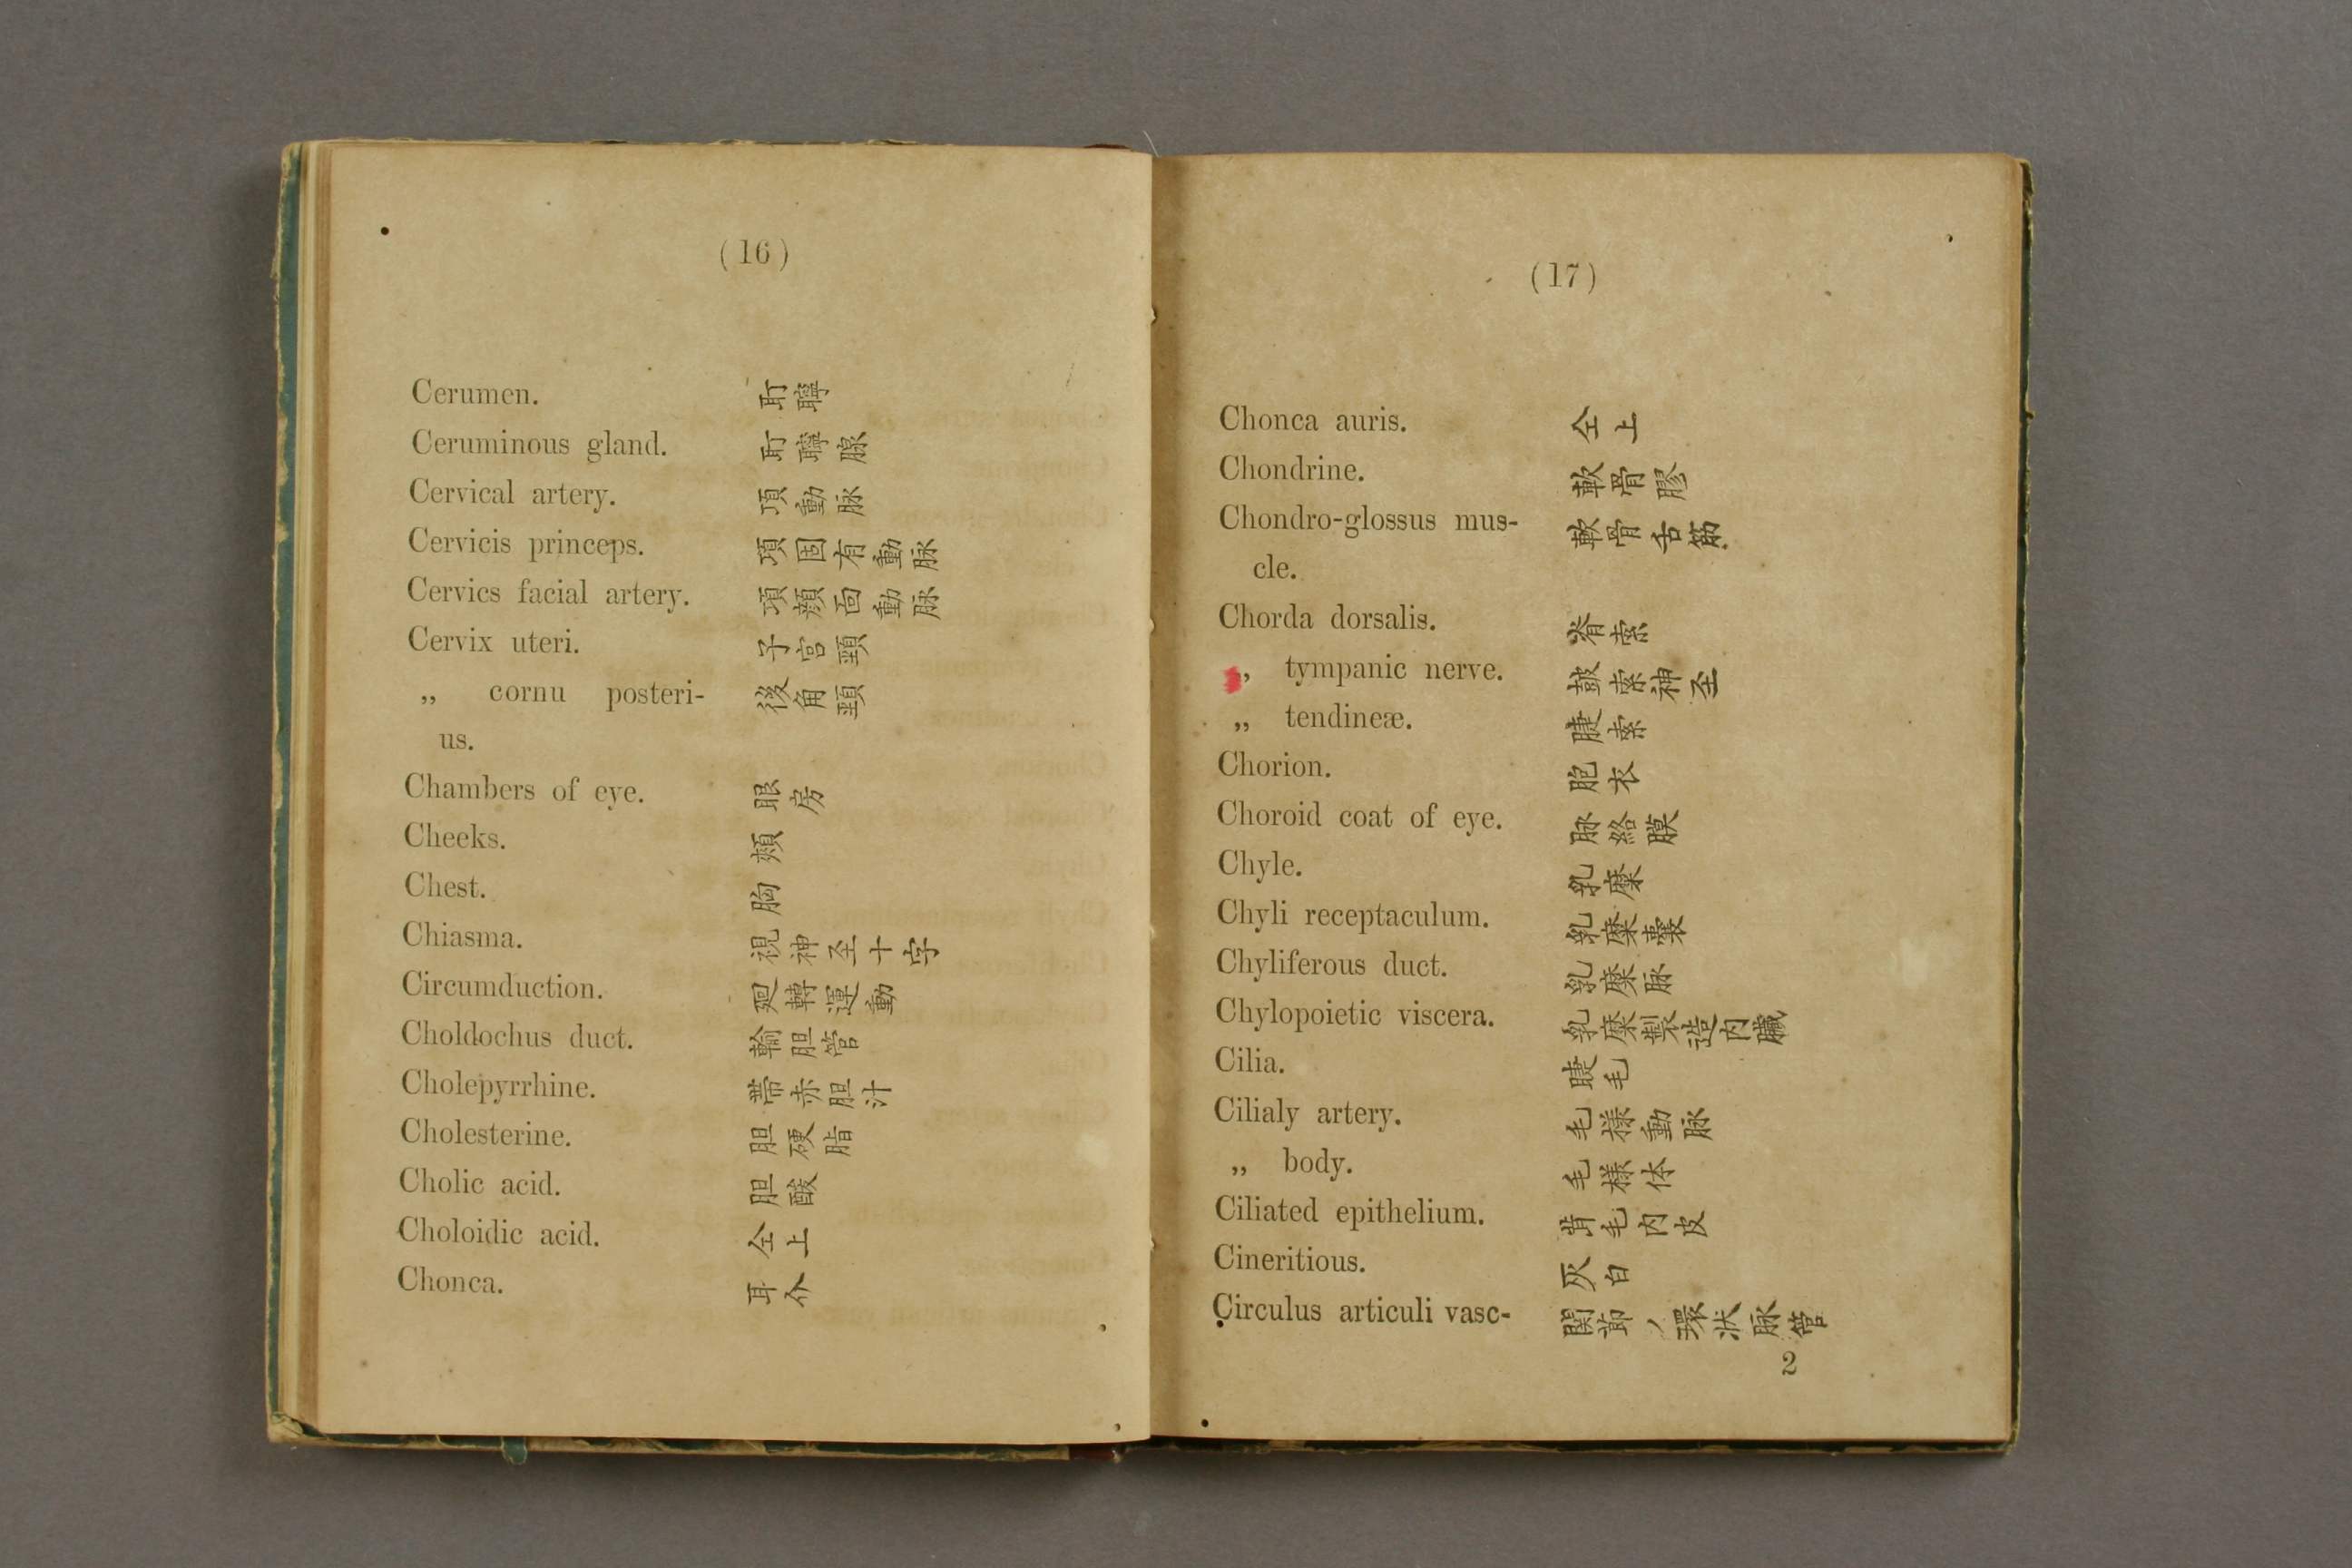 (16)
Cerumen. 耵聹
Ceruminous gland. 耵聹腺
Cervical artery. 項動脉
Cervicis princeps. 項固有動脉
Cervics facial artery. 項顏面動脉
Cervix uteri. 子宮頸
„ cornu posteri- 後角頸
us.
Chambers of eye. 眼房
Cheeks. 頰
Chest. 胸
Chiasma. 視神圣十字
Circumduction. 廻轉運動
Choldochus duct. 輸胆管
Cholepyrrhine. 帶赤胆汁
Cholesterine. 胆硬脂
Cholic acid. 胆酸
Choloidic acid. 仝上
Chonca. 耳介
(17)
Chonca auris. 仝上
Chondrine. 軟骨膠
Chondro-glossus mus- 軟骨舌筋
cle.
Chorda dorsalis. 脊索
„ tympanic nerve. 鼓索神圣
„ tendineæ. 腱索
Chorion. 胞衣
Choroid coat of eye. 脉絡膜
Chyle. 乳糜
Chyli receptaculum. 乳糜嚢
Chyliferous duct. 乳糜脉
Chylopoietic viscera. 乳糜製造内臟
Cilia. 睫毛
Cilialy artery. 毛樣動脉
„ body. 毛樣体
Ciliated epithelium. 毛内皮
Cineritious. 灰白
Circulus articuli vasc- 関節ノ環状脉管
2